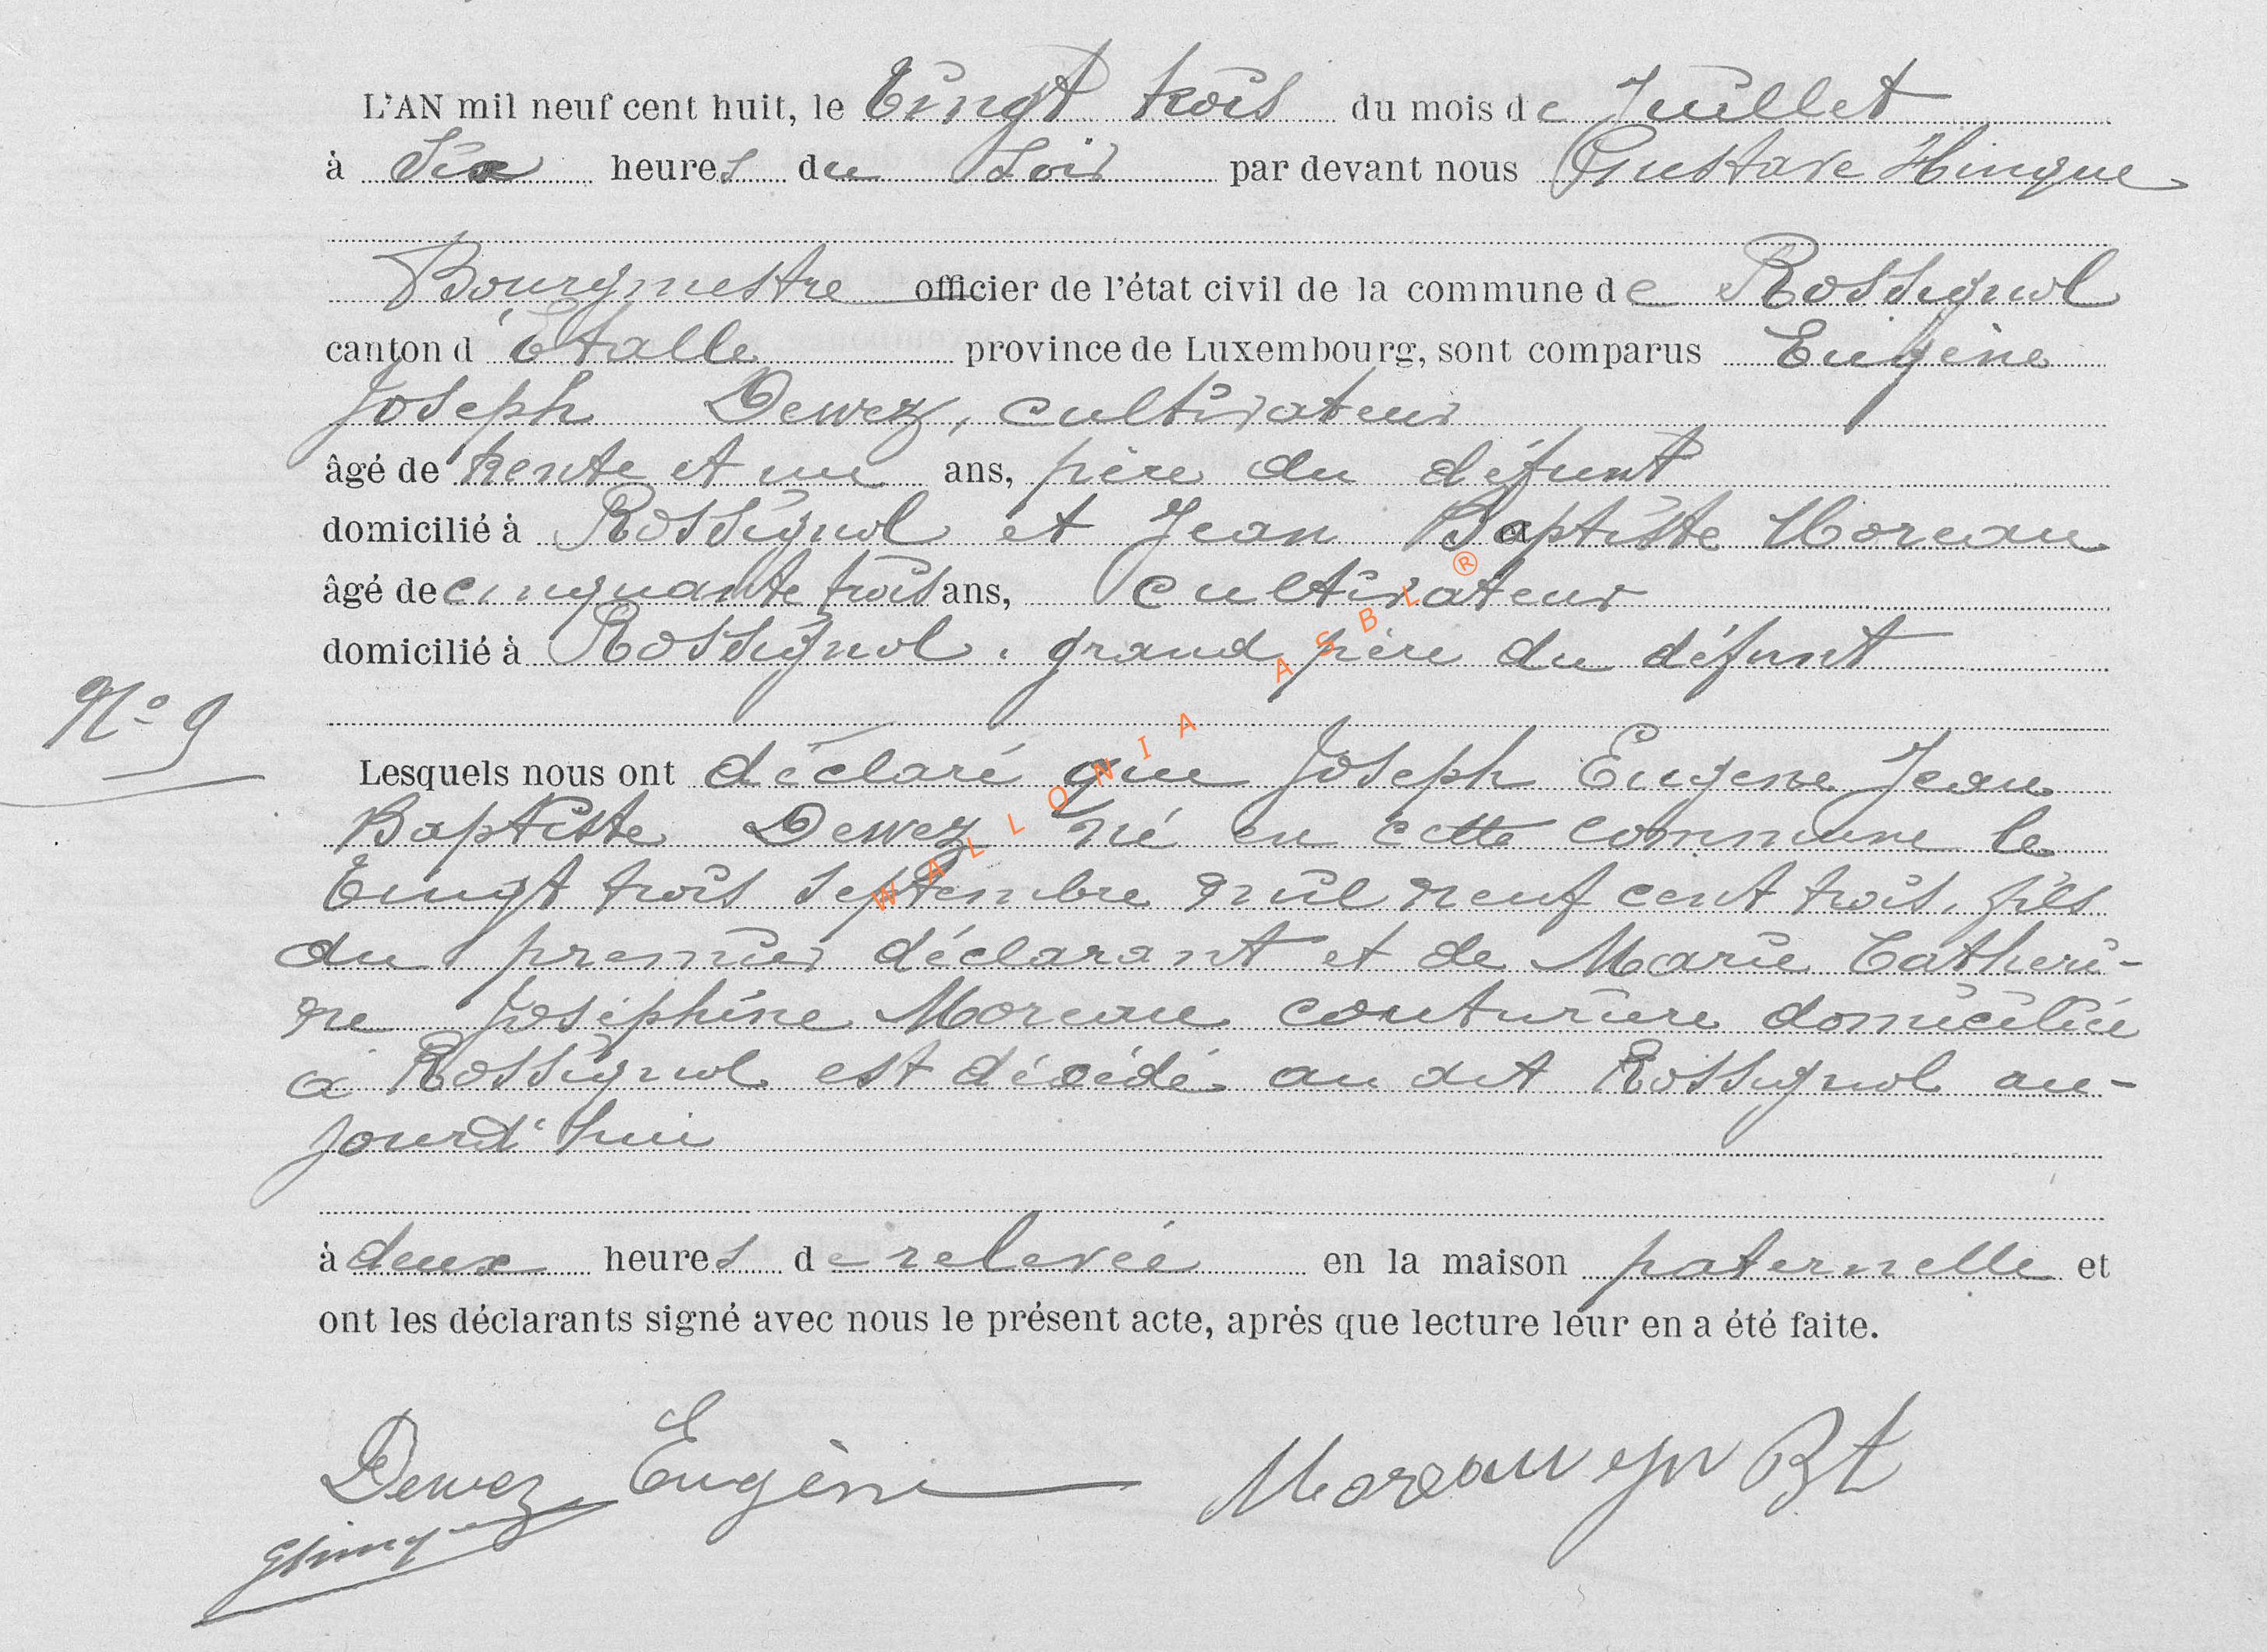 L'AN mil neuf cent huit, le Vingt trois du mois de Juillet
à Six heures du Soir par devant nous Gustave Hinque
Bourgmestre officier de l'état civil de la commune de Rossignol
canton d'Etalle province de Luxembourg, sont comparus Eugène
Joseph Dewez, cultivateur
âgé de trente et un ans, père du défunt
domicilié à Rossignol et Jean Baptiste Moreau
âgé de cinquante trois ans, cultivateur
domicilié à Rossignol. grand père du défunt
N° 9
Lesquels nous ont déclaré que Joseph Eugene Jean
Baptiste Dewez né en cette commune le
Vingt trois septembre mil neuf cent trois, fils
du premier déclarant et de Marie Catheri-
ne Joséphine Moreau couturière domiciliée
à Rossignol est décédé au dit Rossignol au-
jourd'hui
à deux heures de relevée en la maison paternelle et
ont les déclarants signé avec nous le présent acte, après que lecture leur en a été faite.
Dewez Eugène Moreau Bt
GHinque
WALLONIA ASBL ®